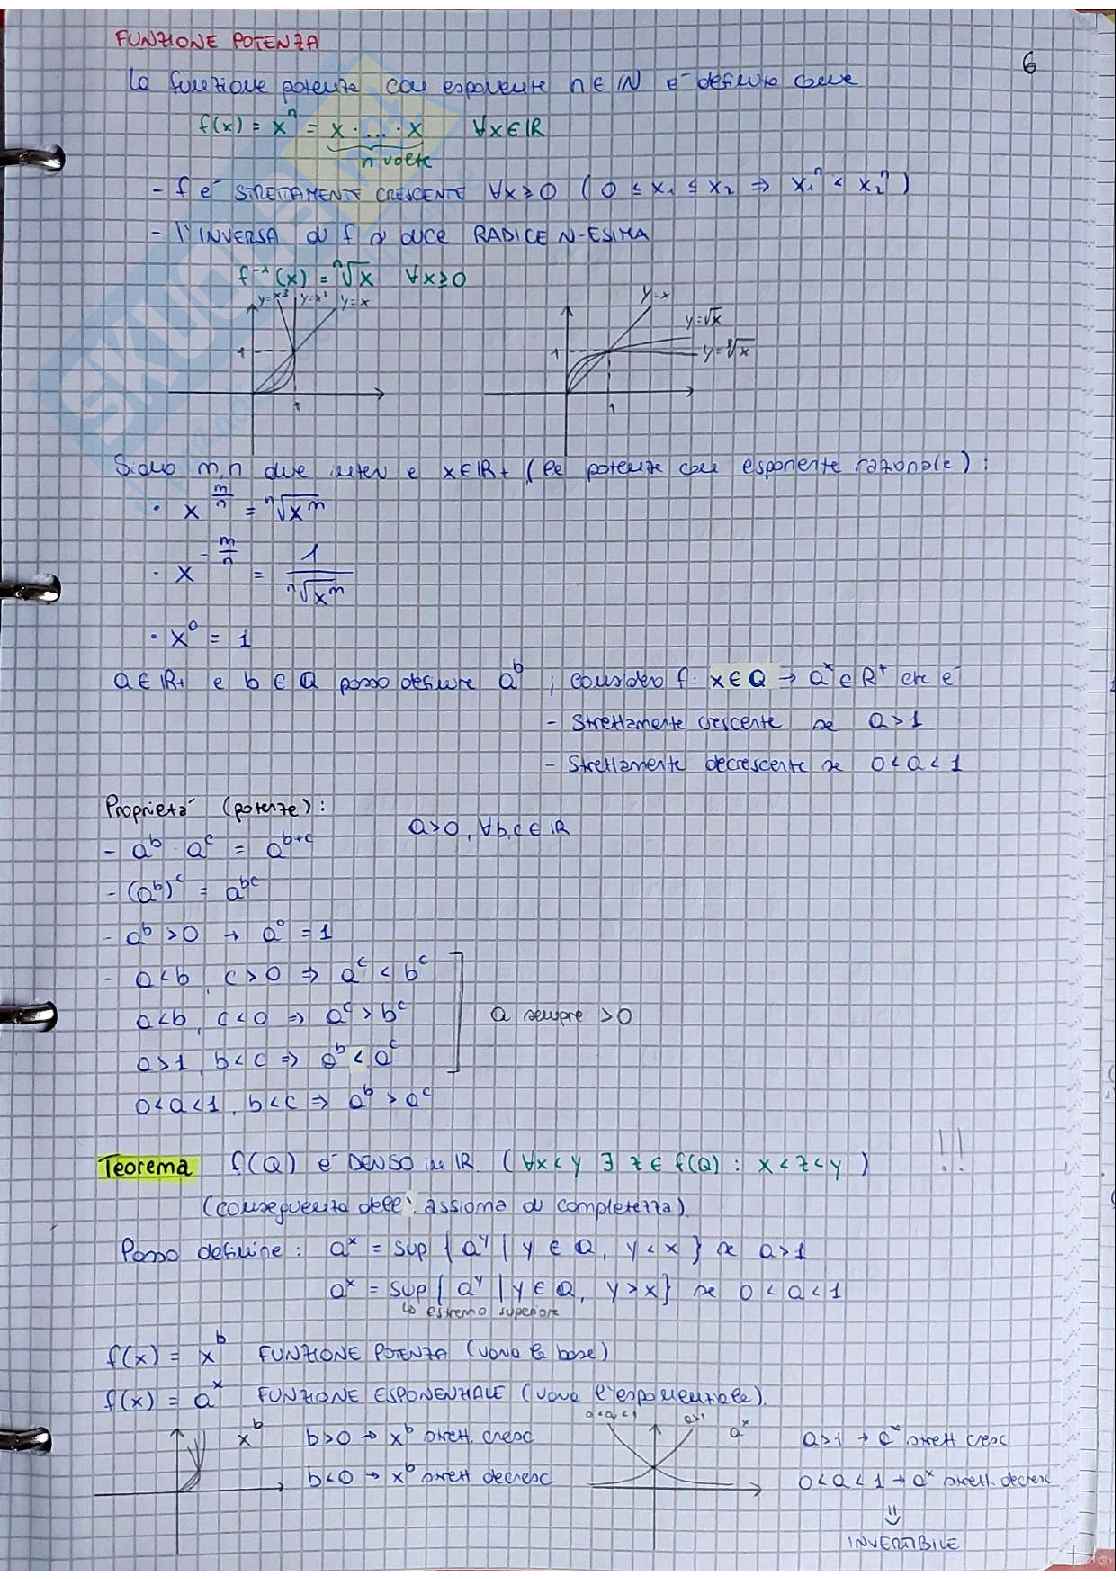 FUNZIONE POTENZA
6
La funzione potenza con esponente n ∈ ℕ e' definita come
f(x) = xⁿ = x · ... · x ∀x ∈ ℝ
n volte
- f e' STRETTAMENTE CRESCENTE ∀x ≥ 0 ( 0 ≤ x₁ ≤ x₂ ⇒ x₁ⁿ < x₂ⁿ )
- l'INVERSA di f si dice RADICE N-ESIMA
f⁻¹(x) = ⁿ√x ∀x ≥ 0
y=x³ y=x² y=x
1
1
y=x
y=√x
y=³√x
1
1
Siano m,n due interi e x∈ℝ+ (le potenze con esponente razionale) :
· x^(m/n) = ⁿ√(x^m)
· x^(-m/n) = 1/ⁿ√(x^m)
· x⁰ = 1
a ∈ ℝ+ e b ∈ Q posso definire a^b , considero f: x ∈ Q → a^x ∈ ℝ⁺ che e'
- Strettamente crescente se a > 1
- Strettamente decrescente se 0 < a < 1
Proprieta' (potenze) :
a > 0, ∀b,c ∈ ℝ
- a^b · a^c = a^(b+c)
- (a^b)^c = a^(bc)
- a^b > 0 → a⁰ = 1
- a < b , c > 0 ⇒ a^c < b^c
a < b , c < 0 ⇒ a^c > b^c
a sempre > 0
a > 1 , b < c ⇒ a^b < a^c
0 < a < 1 , b < c ⇒ a^b > a^c
Teorema f(Q) e' DENSO in ℝ. ( ∀x < y ∃ z ∈ f(Q) : x < z < y ) !!
(conseguenza dell'assioma di completezza).
Posso definire : a^x = sup { a^y | y ∈ Q, y < x } se a > 1
a^x = sup { a^y | y ∈ Q, y > x } se 0 < a < 1
↳ estremo superiore
f(x) = x^b FUNZIONE POTENZA (varia la base)
f(x) = a^x FUNZIONE ESPONENZIALE (varia l'esponenziale).
x^b
b > 0 → x^b strett. cresc
b < 0 → x^b strett decresc
0<a<1
a>1
a^x
a > 1 → a^x strett cresc
0 < a < 1 → a^x strett. decresc
⇓
INVERTIBILE